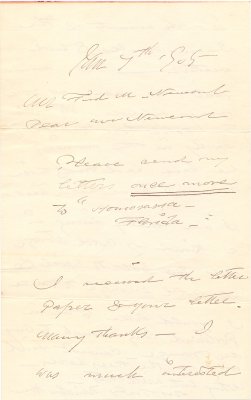 Jan 7th 1905
Mr Fred M. Newcomb
Dear Mr Newcomb
Please send my
letters once more
to "Homosassa –
Florida –"
I received the letter
Paper & your letter.
Many thanks – I
was much interested